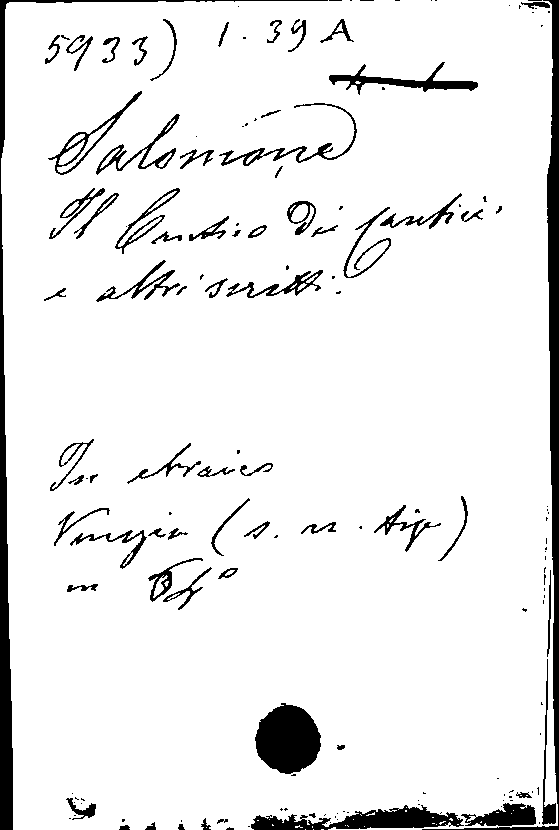 5933) 1. 39 A
Salomone
Il Cantico Dei Cantici.
e altri scritti.
In ebraico
Venezia (s. n. tip)
in 4º